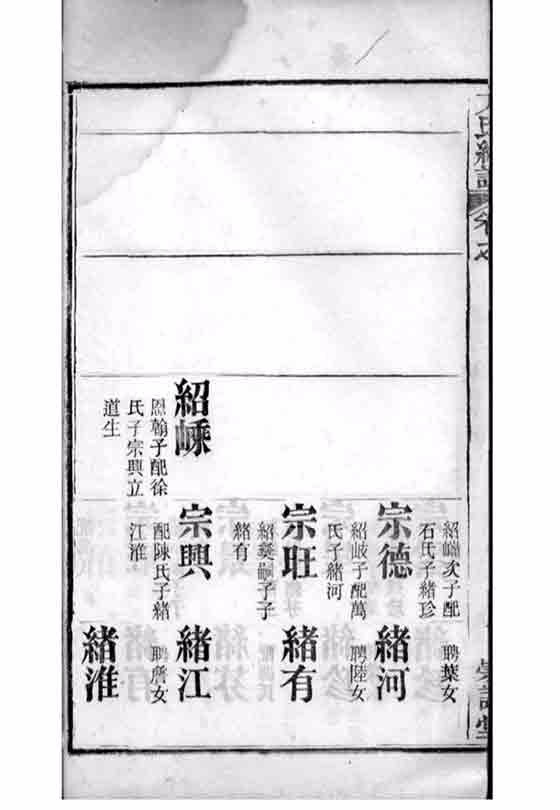 氏
卷之
紹
次子配
石氏子緒珍
聘葉女
宗德
紹岐子配萬
氏子緒河
緒河
聘陸女
宗旺
紹
嗣子子
緒有
緒有
紹嵊
恩翰子配徐
氏子宗興立
道生
宗興
配陳氏子緒
江淮
緒江
聘詹女
緒淮